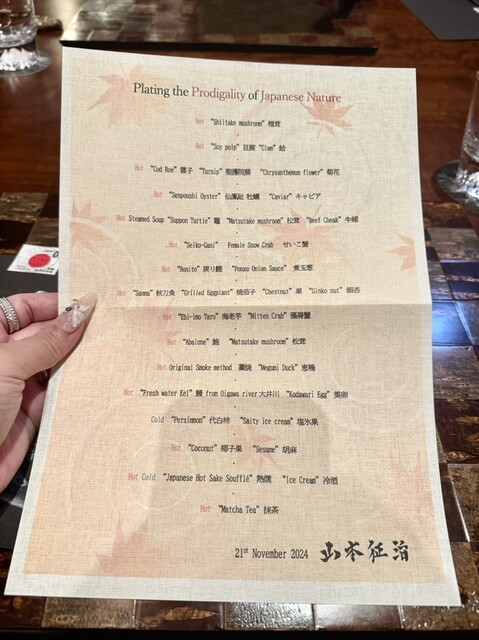 Plating the Prodigality of Japanese Nature
Hot "Shiitake mushroom" 椎茸
Hot "Soy pulp" 豆腐 "Clam" 蛤
Hot "Cod Roe" 雲子 "Turnip" 聖護院蕪 "Chrysanthemum flower" 菊花
Hot "Senpoushi Oyster" 仙鳳趾 牡蠣 "Caviar" キャビア
Hot Steamed Soup "Suppon Turtle" 鼈 "Matsutake mushroom" 松茸 "Beef Cheak" 牛頬
Hot "Seiko-Gani" Female Snow Crab せいこ蟹
Hot "Bonito" 戻り鰹 "Ponzu Onion Sauce" 煮玉葱
Hot "Sanma" 秋刀魚 "Grilled Eggplant" 焼茄子 "Chestnut" 栗 "Ginko nut" 銀杏
Hot "Ebi-imo Taro" 海老芋 "Mitten Crab" 藻屑蟹
Hot "Abalone" 鮑 "Matsutake mushroom" 松茸
Hot Original Smoke method 藁焼 "Meguni Duck" 恵鴨
Hot "Fresh water Eel" 鰻 from Oigawa river 大井川 "Kodawari Egg" 美卵
Cold "Persimmon" 代白柿 "Salty ice cream" 塩氷菓
Hot "Coconut" 椰子果 "Sesame" 胡麻
Hot Cold "Japanese Hot Sake Soufflé" 熱燗 "Ice Cream" 冷酒
Hot "Matcha Tea" 抹茶
21st November 2024 山本征治